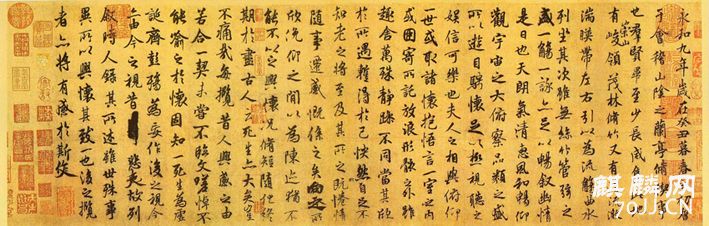 永和九年歲在癸丑暮春之初會
于會稽山陰之蘭亭脩稧事
也群賢畢至少長咸集此地
崇山
有峻領茂林脩竹又有清流激
湍暎帶左右引以為流觴曲水
列坐其次雖無絲竹管弦之
盛一觴一詠亦足以暢敘幽情
是日也天朗氣清惠風和暢仰
觀宇宙之大俯察品類之盛
所以遊目騁懷足以極視聽之
娛信可樂也夫人之相與俯仰
一世或取諸懷抱悟言一室之內
或因寄所託放浪形骸之外雖
趣舍萬殊靜躁不同當其欣
於所遇蹔得於己怏然自足不
知老之將至及其所之既惓情
隨事遷感慨係之矣向之所
欣俛仰之間以為陳迹猶不
能不以之興懷況脩短隨化終
期於盡古人云死生亦大矣豈
不痛哉每攬昔人興感之由
若合一契未嘗不臨文嗟悼不
能喻之於懷固知一死生為虛
誕齊彭殤為妄作後之視今
亦由今之視昔悲夫故列
敘時人錄其所述雖世殊事
異所以興懷其致一也後之攬
者亦將有感於斯文
麒麟网
70JJ.CN